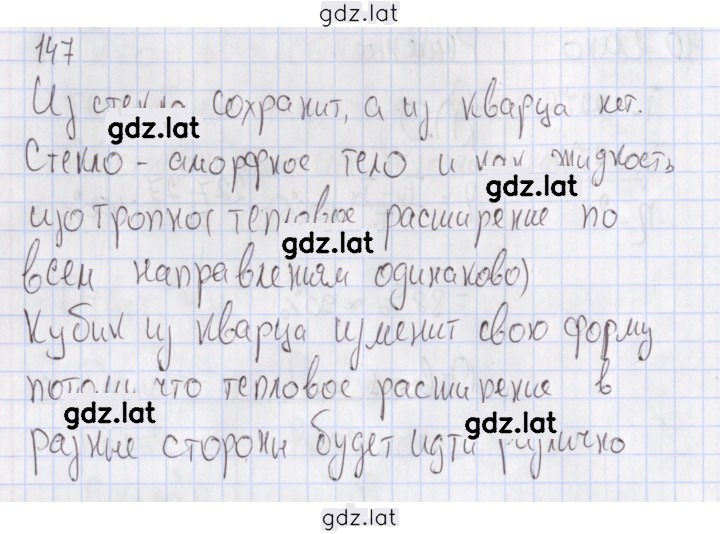 gdz.lat
147
Из стекла сохранит, а из кварца нет.
gdz.lat
Стекло - аморфное тело и как жидкость
gdz.lat
изотропное тепловое расширение по
gdz.lat
всем направлениям одинаково)
Кубик из кварца изменит свою форму
потому что тепловое расширение в
gdz.lat
разные стороны будет идти различно
gdz.lat